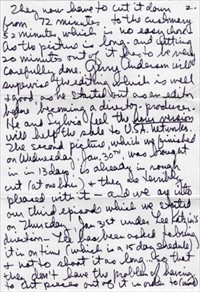 They now have to cut it down 2.
from 72 minutes to the customary
52 minutes which is no easy chore
as the picture is long - and cutting
20 minutes out of it has to be very
carefully done. Gerry Anderson will
supervise the editing which is well
& good, as he started out as an editor
before becoming a director-producer.
He and Sylvia feel the hour version
will help the sale to U.S.A. networks.
The second picture, which we finished
on Wednesday Jan. 30th, was brought
in in 13 days! is already in rough
cut (at one hour) & they are terribly
pleased with it - and we are into
our third episode which we started
on Thursday Jan 31st under Lee Katzin's
direction - Lee has been asked to bring
it in on time (which is a 15 day schedule)
& not to shoot it so long... So that
they don't have the problem of having
to cut pieces out of it in order to make